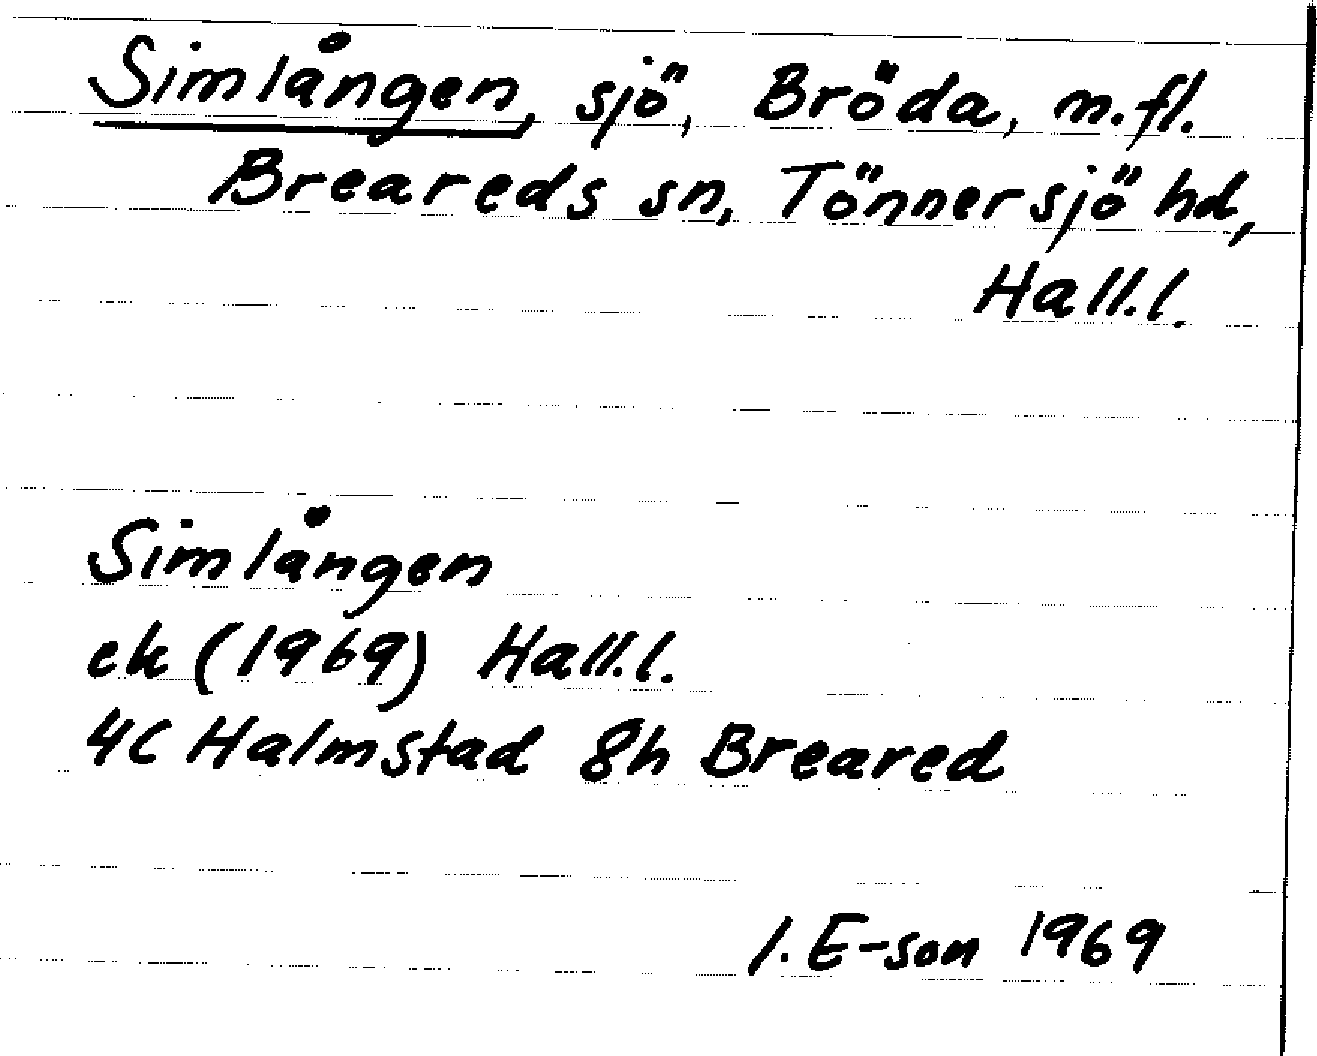 Simlången, sjö, Bröda, m.fl.
Breareds sn, Tönnersjö hd,
Hall.l.
Simlången
ek (1969) Hall.l.
4C Halmstad 8h Breared
I. E-son 1969